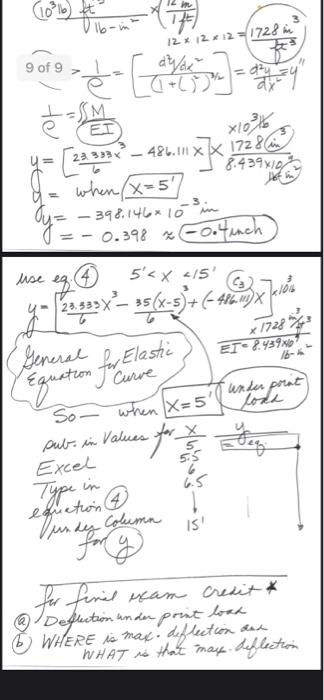 (10³ lb) ft³ / lb-in² × (12 in / 1 ft)³
12 × 12 × 12 = 1728 in³ / ft³
9 of 9
1/ρ = [ d²y/dx² / (1+( )²)^3/2 ] = d²y/dx² = y"
1/ρ = ∫∫ M / EI
y = [ 23.333x³/6 - 486.111 X ] × ×10³ lb 1728 in³ / 8.439×10⁹ lb-in²
y = when X=5'
y = - 398.146 × 10⁻³ in
y = - 0.398 ≈ -0.4 inch
use eq. (4) 5' < X < 15' (C₃)
y = [ 23.333X³/6 - 35(x-5)³/6 + (-486.111)X ] ×10³ lb × 1728 in³/ft³
EI = 8.439×10⁹ lb-in²
General Equation for Elastic Curve
So — when X=5' (under point load)
sub. in Values for x y
Excel 5 = eq.
5.5
6
Type in 6.5
equation (4)
under Column 15'
for y
for final exam credit *
(a) Deflection under point load
(b) WHERE is max. deflection and
WHAT is that max. deflection